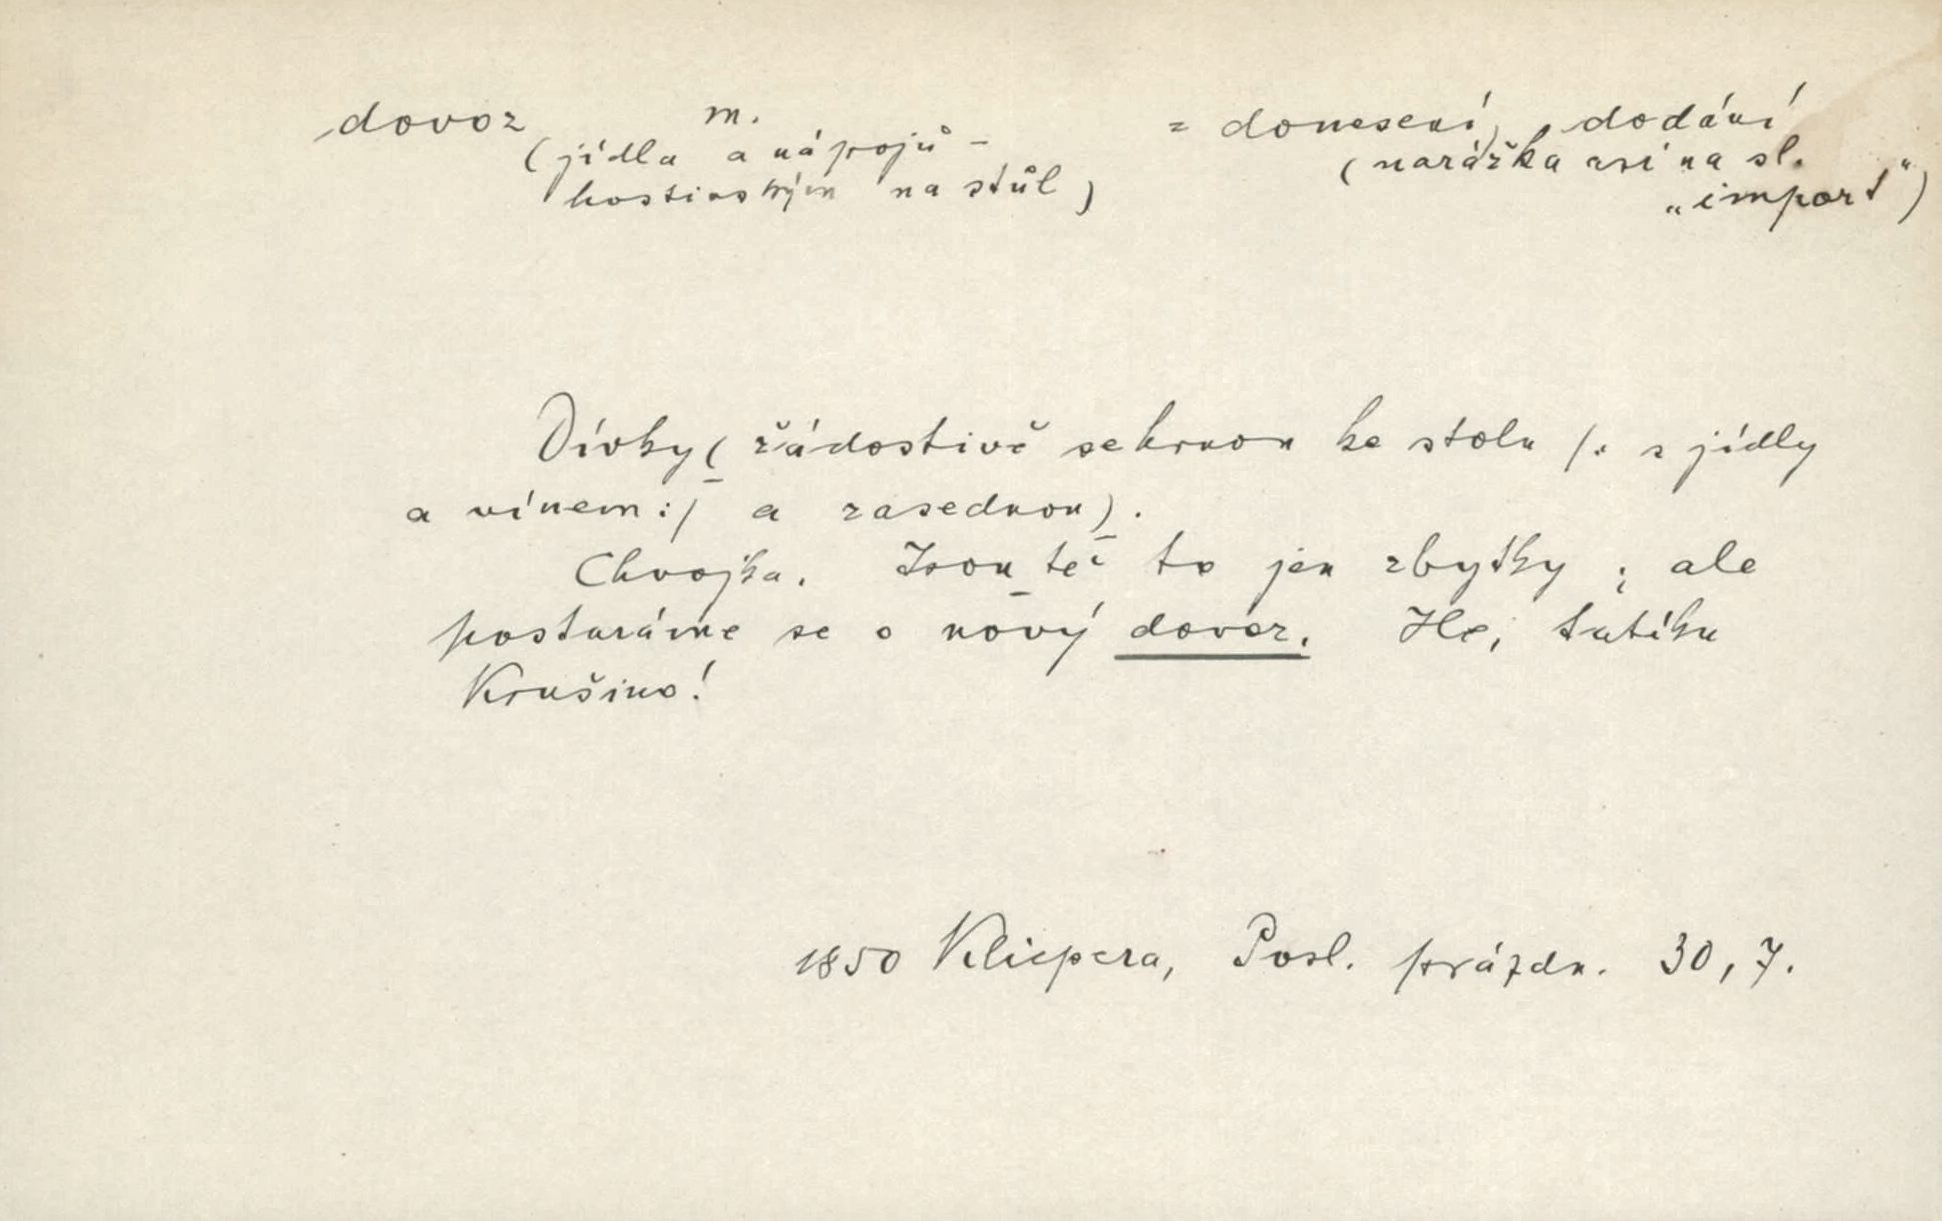 dovoz m. = donesení, dodání
(jídla a nápojů – (narážka asi na sl.
hostinským na stůl) „import")
Dívky (žádostivě se hrnou ke stolu /: s jídly
a vínem :/ a zasednou).
Chvojka. Jsou teď to jen zbytky; ale
postaráme se o nový dovoz. He, tatíku
Krušino!
1850 Klicpera, Posl. prázdn. 30, 7.